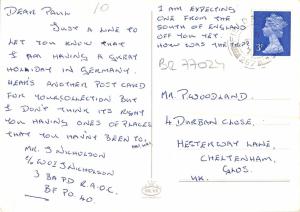 DEAR PAUL 10
JUST A LINE TO
LET YOU KNOW THAT
I AM HAVING A GREAT
HOLLIDAY IN GERMANY.
HEAR'S ANOTHER POST CARD
FOR YOUR COLLECTION BUT
I DON'T THINK ITS RIGHT
YOU HAVING ONES OF PLACES
THAT YOU HAVN'T BEEN TO.
J NICHOLSON
C/O WO2 J NICHOLSON
3 BAPD R.A.O.C.
BF PO. 40.
I AM EXPECTING
ONE FROM THE
SOUTH OF ENGLAND
OFF YOU YET.
HOW WAS THE TRIP?
3P
BR 77024
MR. P. WOODLAND.
4 DURBAN CLOSE,
HESTERWAY LANE,
CHELTENHAM,
GLOS.
UK.